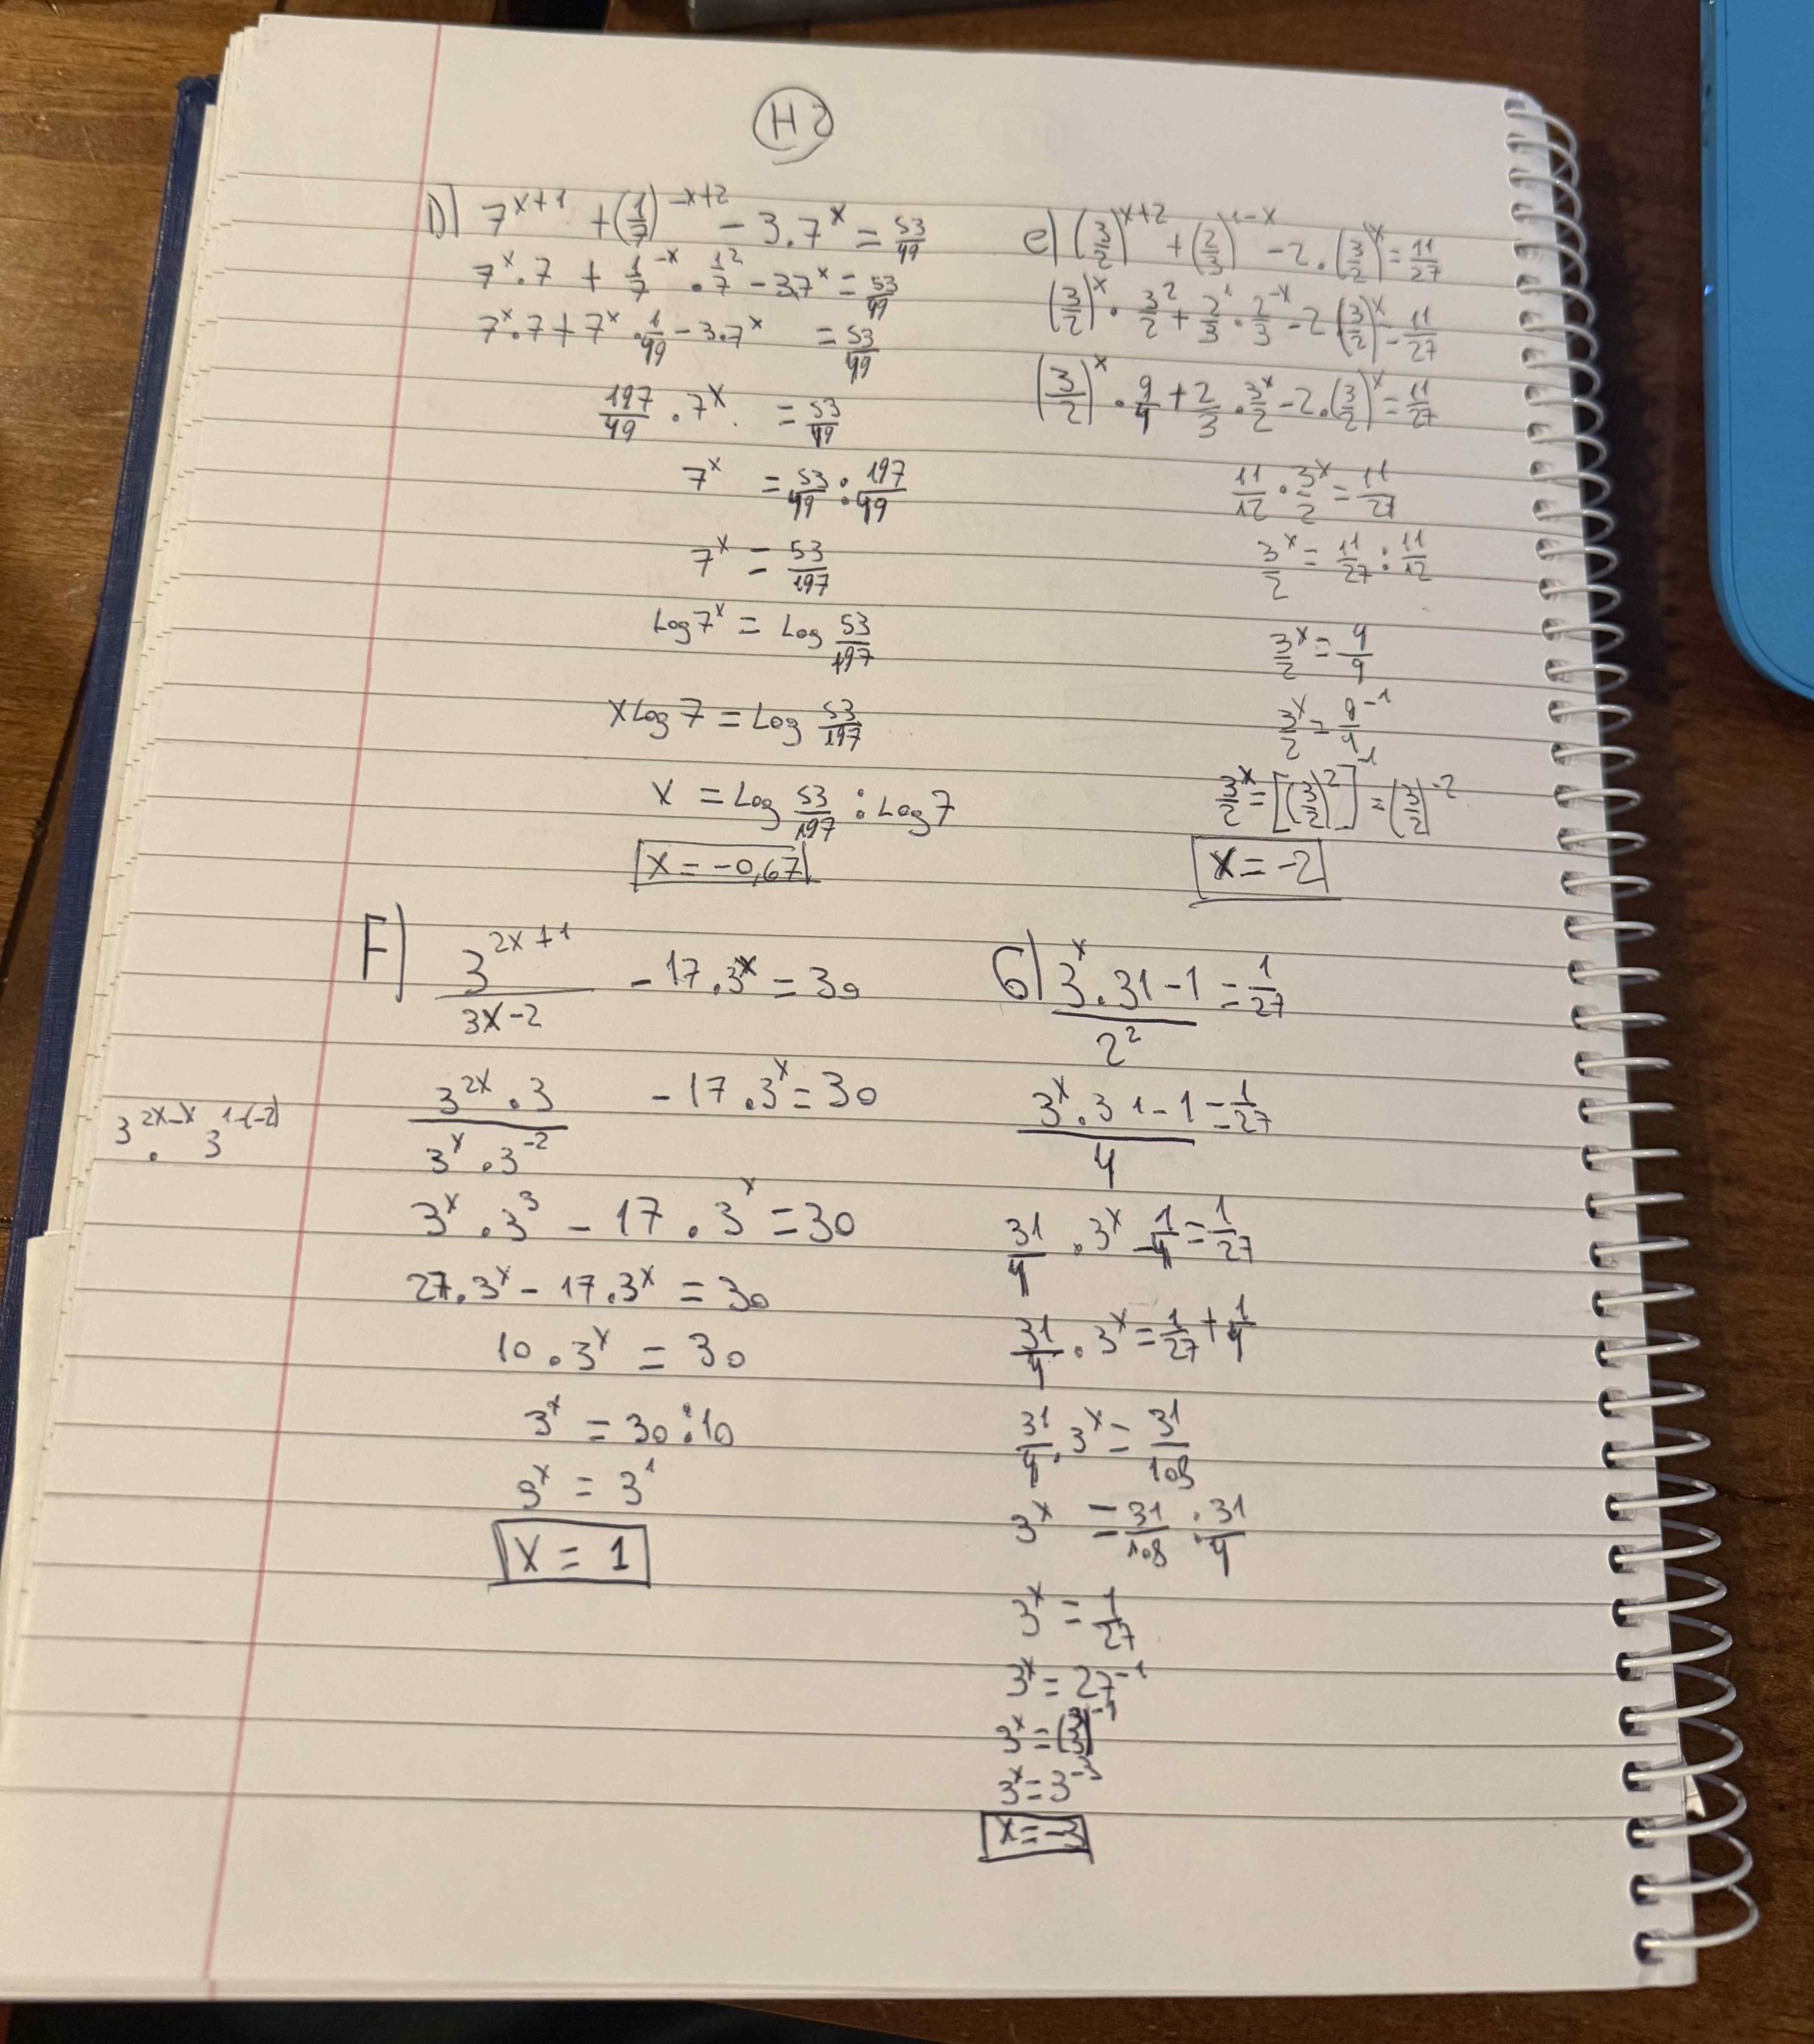 H2
D) 7^(x+1) + (1/7)^(-x+2) - 3.7^x = 53/49
7^x.7 + 1/7^-x . 1/7^2 - 3.7^x = 53/49
7^x.7 + 7^x . 1/49 - 3.7^x = 53/49
197/49 . 7^x. = 53/49
7^x = 53/49 : 197/49
7^x = 53/197
Log 7^x = Log 53/197
x Log 7 = Log 53/197
x = Log 53/197 : Log 7
x = -0,67
e) (3/2)^(x+2) + (2/3)^(1-x) - 2.(3/2)^x = 11/27
(3/2)^x . 3/2^2 + 2/3^1 . 2/3^-x - 2(3/2)^x = 11/27
(3/2)^x . 9/4 + 2/3 . 3/2^x - 2.(3/2)^x = 11/27
11/12 . 3/2^x = 11/27
3/2^x = 11/27 : 11/12
3/2^x = 4/9
3/2^x = 9/4^-1
3/2^x = [(3/2)^2]^-1 = (3/2)^-2
x = -2
F) 3^(2x+1) / 3x-2 - 17.3^x = 30
3^(2x-x) . 3^(1-(-2))
3^2x . 3 / 3^x . 3^-2 - 17.3^x = 30
3^x . 3^3 - 17 . 3^x = 30
27.3^x - 17.3^x = 30
10 . 3^x = 30
3^x = 30:10
3^x = 3^1
x = 1
G) 3^x . 31 - 1 / 2^2 = 1/27
3^x . 31 - 1 / 4 = 1/27
31/4 . 3^x - 1/4 = 1/27
31/4 . 3^x = 1/27 + 1/4
31/4 . 3^x = 31/108
3^x = 31/108 : 31/4
3^x = 1/27
3^x = 27^-1
3^x = 3^-3
x = -3